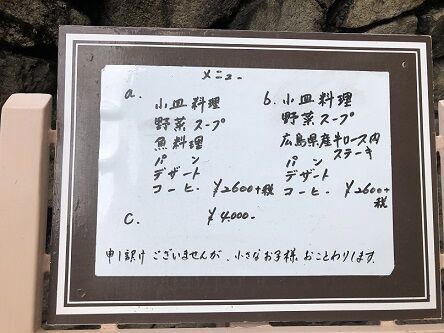 メニュー
a.
小皿料理
野菜スープ
魚料理
パン
デザート
コーヒー. ¥2600+税
b. 小皿料理
野菜スープ
広島県産牛ロース肉
ステーキ
パン
デザート
コーヒー. ¥2600+
税
C. ¥4,000-
申し訳けございませんが、小さなお子様、おことわりします.